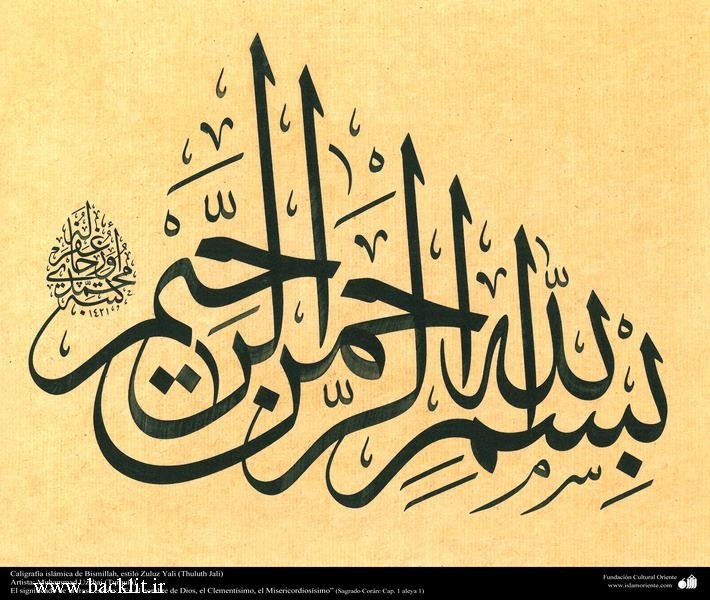 بسم الله الرحمن الرحيم
كتبه محمد اوزچاي
غفر له
١٤٢١
Caligrafía islámica de Bismillah, estilo Zuluz Yali (Thuluth Jali)
Artista: Muhammad
www.backlit.ir
El de Dios, el Clementísimo, el Misericordiosísimo" (Sagrado Corán: Cap. 1 aleya 1)
Fundación Cultural Oriente
www.islamoriente.com